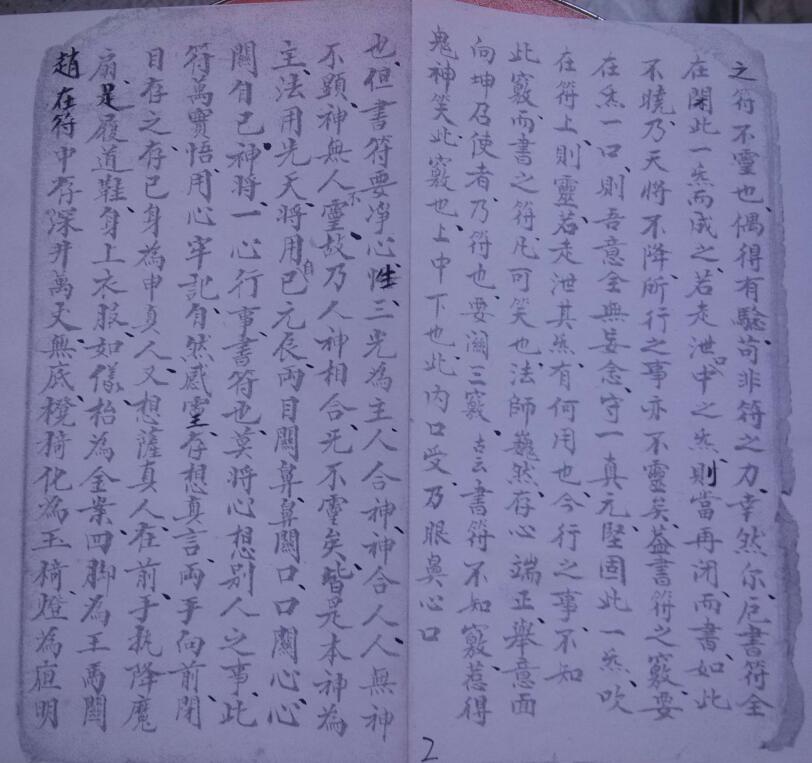 之符不靈也、偶得有驗、苟非符之力、幸然尔、凡書符全
在閉此一炁而成之、若走泄中之炁、則當再閉、而書、如此
不曉、乃天將不降、所行之事亦不靈矣、蓋書符之竅、要
在炁一口、則吾意全無妄念、守一真元、堅固此一炁、吹
在符上、則靈、若走泄其炁、有何用也、今行之事、不知
此竅、而書之符、凡可笑也、法師巍然、存心端正、舉意面
向坤召使者、乃符也、要關三竅、古云書符不知竅、惹得
鬼神笑、此竅也、上中下也、此内口受、乃眼鼻心口
也、但書符要淨心性、三光為主、人合神、神合人、人無神
不顯、神無人不靈、故乃人神相合、无不靈矣、皆是本神為
主、法用先天、將用自己元辰、兩目關鼻、鼻關口、口關心、心
關自己神將、一心行事、書符也、莫將心想別人之事、此
符萬寶悟、用心牢記、自然感靈、存想真言、兩手向前、閉
目存之、存己身為申真人、又想薩真人、在前、手執降魔
扇、是履道鞋、身上衣服、如儀、枱為金案、四脚為王馬關
趙在符中、存深井萬丈無底、櫈椅化為玉椅、燈為
明
2